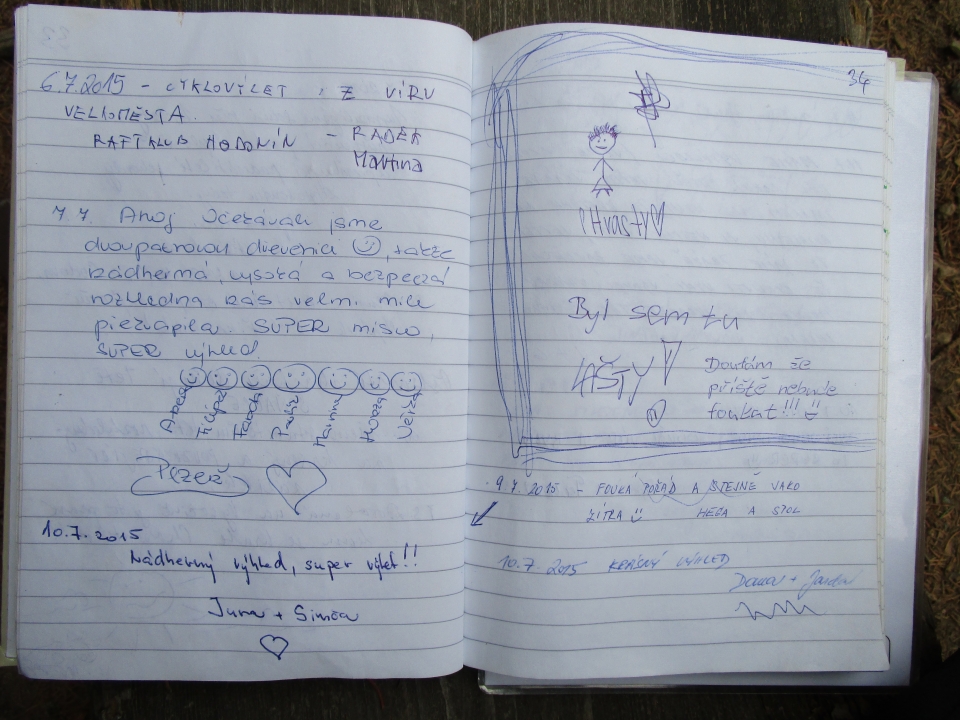 6.7.2015 - CYKLOVÝLET Z VÍRU
VELKOMĚSTA.
RAFTKLUB HODONÍN - RADEK
Martina
7.7. Ahoj Očekávali jsme
dvoupatrovou dřevěnici, takže
nádherná, vysoká a bezpečná
rozhledna nás velmi mile
překvapila. SUPER místo,
SUPER výhled.
Pezeš
10.7.2015
Nádherný výhled, super výlet!!
Jura + Simča
34
Chvasty
Byl sem tu
Doufám že
příště nebude
foukat!!!
9.7.2015 - FOUKÁ POŘÁD A STEJNĚ JAKO
ZÍTRA HEGA A STOL
10.7.2015 KRÁSNÝ VÝHLED
Dana + Jarda